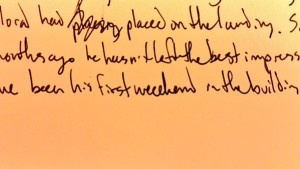 local had placed on the landing. S
months ago he hasn't left the best impress
ve been his first weekend in the buildin